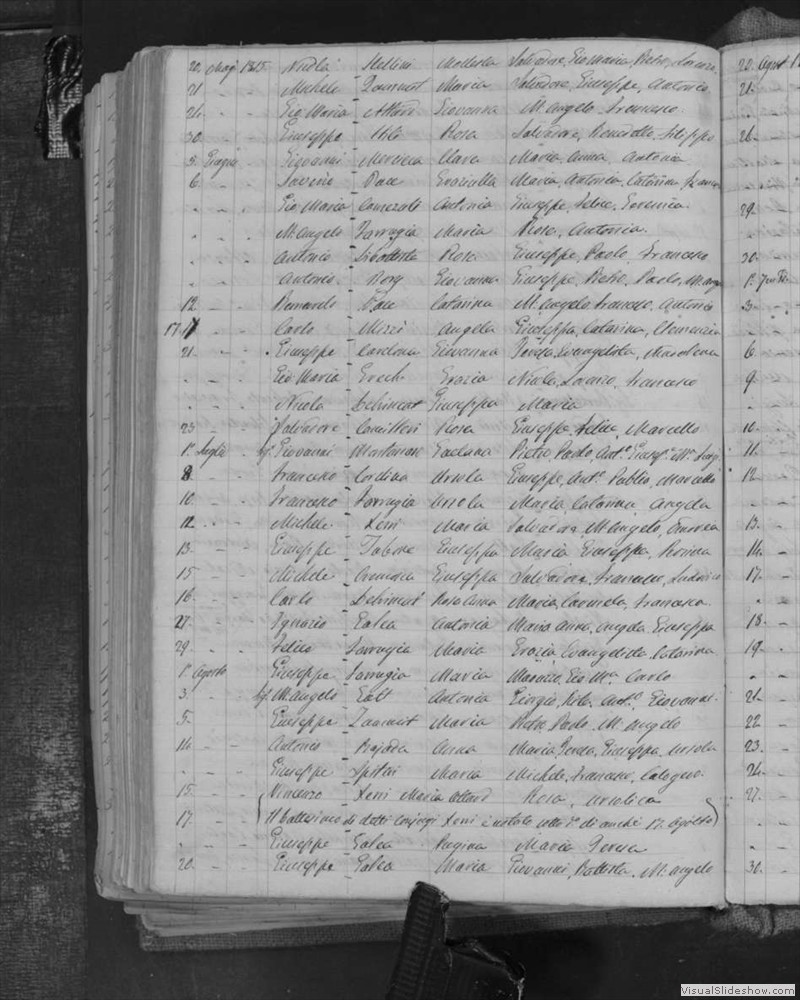 20 Mag. 1815 Nicola Stellini Modesta Salvadore, Gio Maria, Pietro, Lorenzo
21 - - Michele Dammet Maria Salvadore, Giuseppe, Antonio
24 - - Gio Maria Attard Giovanna M. Angelo Francesco
30 - - Giuseppe Rosa Salvadore, Filippo
5 Giugno - Giovanni Mercieca Clara Maria Anna, Antonia
6 - - Saverio Pace Graziulla Maria, Antonia, Catarina
- - - Gio Maria Camezuli Antonia Giuseppe, Felice
- - - M. Angelo Farrugia Maria Rosa, Antonia
- - - Antonio Rosa Giuseppe, Paolo, Francesco
- - - Antonio Borg Giovanna Giuseppe, Pietro, Paolo, M. Ang.
12 - - Bernardo Pace Catarina M. Angelo, Francesco, Antonio
17 - - Carlo Mizzi Angela Giuseppa, Catarina, Clemenzia
21 - - Giuseppe Cardona Giovanna Teresa, Evangelista, Maddalena
- - - Gio Maria Grech Grazia Nicola, Lorenzo, Francesco
- - - Nicola Schincat Giuseppa Maria
23 - - Salvadore Camilleri Rosa Giuseppe, Felice, Marcello
1º Luglio - Giovanni Gaetana Pietro Paolo, Antº, Giusepe
8 - - Francesco Cordina Ursola Giuseppe, Antº, Publio, Marcello
10 - - Francesco Farrugia Ursola Maria, Catarina, Angela
12 - - Michele Xerri Maria Salvadora, M. Angelo, Andrea
13 - - Giuseppe Tabone Giuseppa Maria, Giuseppa
15 - - Michele Cremona Giuseppa Salvadore, Francesco, Ludovico
16 - - Carlo Schincat Rosa Anna Maria, Carmela, Francesca
27 - - Ignazio Galea Antonia Maria Anna, Angela, Giuseppa
29 - - Felice Farrugia Maria Grazia, Evangelista, Catarina
1º Agosto Giuseppe Farrugia Maria Maurizio, Gio Mª Carlo
3 - - M. Angelo Galt Antonia Giorgio, Vito, Antº, Giovanni
5 - - Giuseppe Zammit Maria Pietro Paolo, M. Angelo
14 - - Antonio Bajada Anna Maria, Teresa, Giuseppa, Ursola
- - - Giuseppe Spiteri Maria Michele, Francesco, Calogero
15 - - Vincenzo Xerri Maria Attard Rosa, Ursolica
17 - - Il battesimo di detti conjugi Xerri è notato sotto di anche 17 Agosto
- - - Giuseppe Galea Regina Maria Teresa
20 - - Giuseppe Galea Maria Giovanni, Battista, M. Angelo
20 Agost 1
21 -
26 -
29 -
30 -
3 -
6 -
9 -
10 -
11 -
12 -
13 -
14 -
17 -
18 -
19 -
21 -
22 -
23 -
24 -
27 -
30 -
VisualSlideshow.com